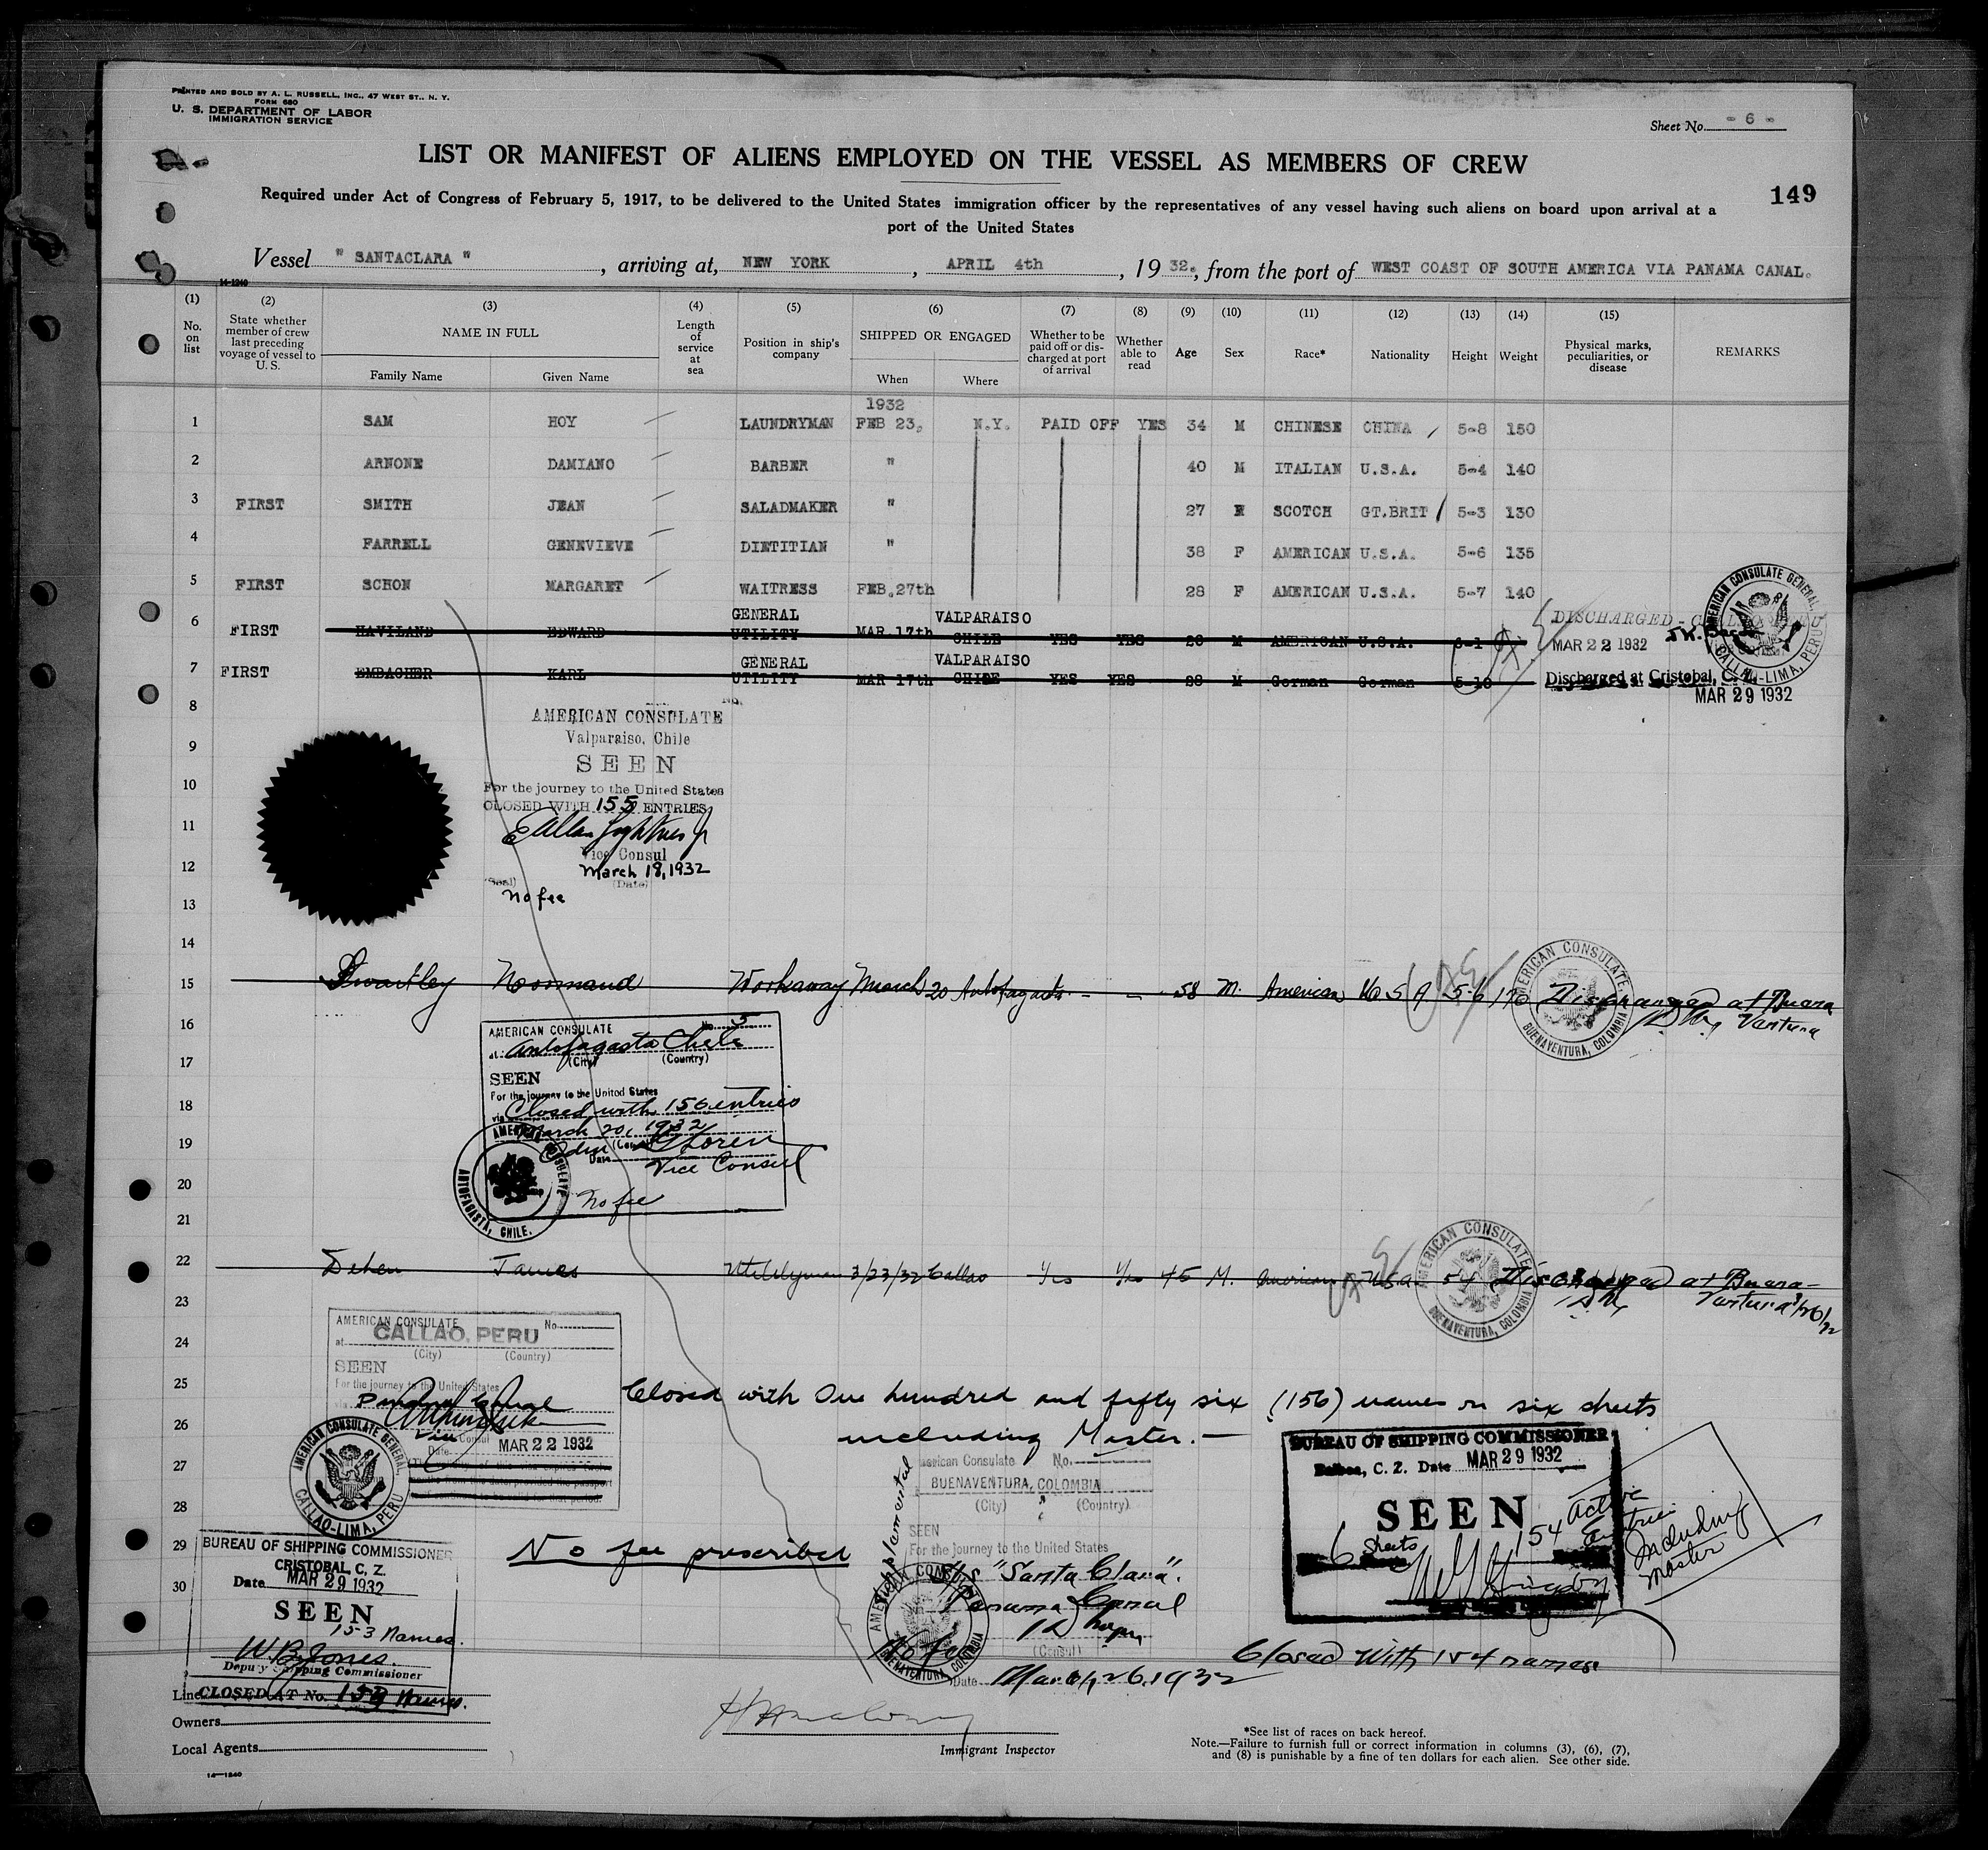 PRINTED AND SOLD BY A. L. RUSSELL, INC., 47 WEST ST., N. Y.
FORM 680
U. S. DEPARTMENT OF LABOR
IMMIGRATION SERVICE
Sheet No. - 6 -
LIST OR MANIFEST OF ALIENS EMPLOYED ON THE VESSEL AS MEMBERS OF CREW
149
Required under Act of Congress of February 5, 1917, to be delivered to the United States immigration officer by the representatives of any vessel having such aliens on board upon arrival at a
port of the United States
Vessel " SANTACLARA " , arriving at, NEW YORK , APRIL 4th , 19 32. , from the port of WEST COAST OF SOUTH AMERICA VIA PANAMA CANAL.
14-1240
(1) No. on list
(2) State whether member of crew last preceding voyage of vessel to U. S.
(3) NAME IN FULL Family Name Given Name
(4) Length of service at sea
(5) Position in ship's company
(6) SHIPPED OR ENGAGED When Where
(7) Whether to be paid off or discharged at port of arrival
(8) Whether able to read
(9) Age
(10) Sex
(11) Race*
(12) Nationality
(13) Height
(14) Weight
(15) Physical marks, peculiarities, or disease
REMARKS
1932
1 SAM HOY LAUNDRYMAN FEB 23, N.Y. PAID OFF YES 34 M CHINESE CHINA 5-8 150
2 ARNONE DAMIANO BARBER " 40 M ITALIAN U.S.A. 5-4 140
3 FIRST SMITH JEAN SALADMAKER " 27 F SCOTCH GT.BRIT 5-3 130
4 FARRELL GENEVIEVE DIETITIAN " 38 F AMERICAN U.S.A. 5-6 135
5 FIRST SCHON MARGARET WAITRESS FEB.27th 28 F AMERICAN U.S.A. 5-7 140
6 FIRST HAVILAND EDWARD GENERAL UTILITY MAR 17th VALPARAISO CHILE YES YES 26 M AMERICAN U.S.A. 6-1
DISCHARGED
MAR 22 1932
AMERICAN CONSULATE GENERAL, CALLAO-LIMA, PERU
7 FIRST EMBACHER KARL GENERAL UTILITY MAR 17th VALPARAISO CHILE YES YES 28 M German German 5-10
Discharged at Cristobal, C. Z.
MAR 29 1932
8
AMERICAN CONSULATE
Valparaiso, Chile
9
SEEN
10
For the journey to the United States
CLOSED WITH 155 ENTRIES
11
12
Vice Consul
March 18, 1932
(Seal) (Date)
13
No fee
14
15 Swartley Normand Workaway March 20 Antofagasta - - 58 M. American U S A 5-6 170 Discharged at Buena
Ventura
AMERICAN CONSULATE BUENAVENTURA, COLOMBIA
16
AMERICAN CONSULATE No. 5
at Antofagasta Chile
(City) (Country)
17
SEEN
For the journey to the United States
18
via Closed with 156 entries
March 20, 1932
19
(Consul)
Date
Vice Consul
20
No fee
AMERICAN CONSULATE ANTOFAGASTA, CHILE.
21
22 Dehen James Utilityman 3/23/32 Callao Yes Yes 45 M. American USA 54 Discharged at Buena-
Ventura 3/26/32
AMERICAN CONSULATE BUENAVENTURA, COLOMBIA
23
AMERICAN CONSULATE No.
at CALLAO, PERU
24
(City) (Country)
SEEN
25
For the journey to the United States
via Panama Canal
Closed with One hundred and fifty six (156) names on six sheets
26
including Master. —
Vice Consul
Date MAR 22 1932
AMERICAN CONSULATE GENERAL, CALLAO-LIMA, PERU
27
28
29
30
American Consulate No.
BUENAVENTURA, COLOMBIA
(City) (Country)
SEEN
For the journey to the United States
Supplemental
S/S "Santa Clara".
Panama Canal
(Consul)
No fee
Date March 26, 1932
AMERICAN CONSULATE BUENAVENTURA, COLOMBIA
No fee prescribed
BUREAU OF SHIPPING COMMISSIONER
Balboa, C. Z. Date MAR 29 1932
SEEN
6 Sheets 154 Active Entries
Including Master
Closed With 154 names
BUREAU OF SHIPPING COMMISSIONER
CRISTOBAL, C. Z.
Date MAR 29 1932
SEEN
153 Names.
W.B. Jones.
Deputy Shipping Commissioner
Line CLOSED AT No. 153 Names.
Owners
Local Agents
14-1240
Immigrant Inspector
*See list of races on back hereof.
Note.—Failure to furnish full or correct information in columns (3), (6), (7),
and (8) is punishable by a fine of ten dollars for each alien. See other side.